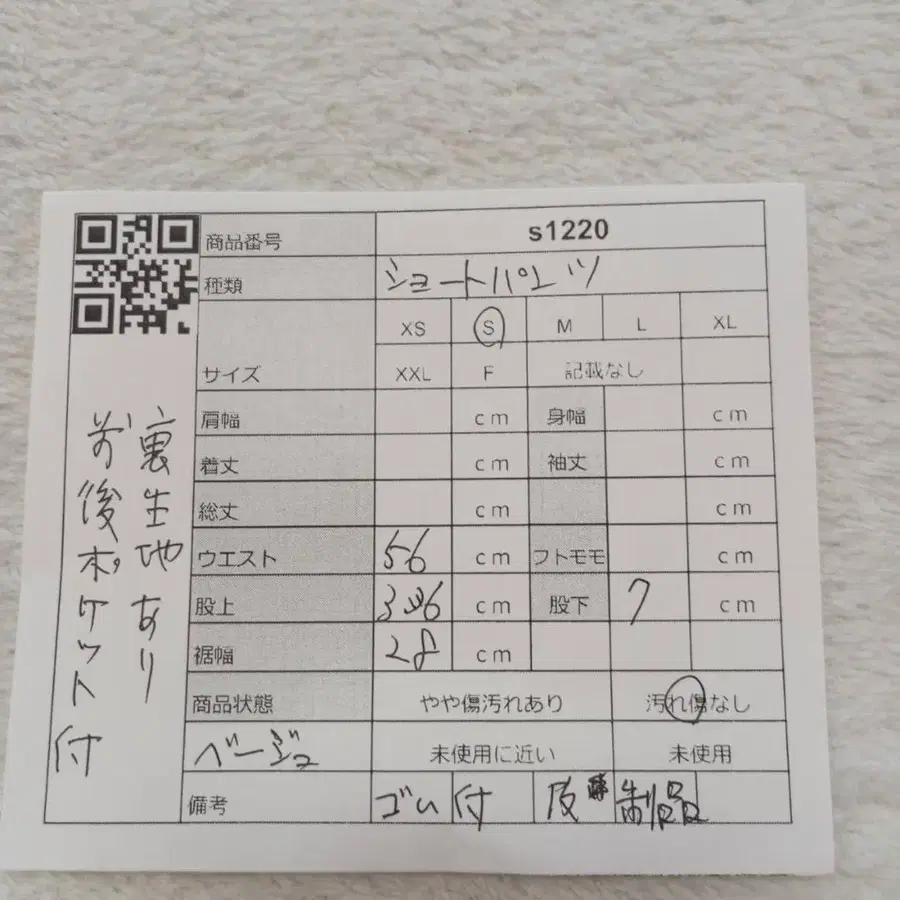 商品番号 s1220
種類 ショートパンツ
XS S M L XL
サイズ XXL F 記載なし
肩幅 cm 身幅 cm
着丈 cm 袖丈 cm
総丈 cm cm
ウエスト 56 cm フトモモ cm
股上 cm 股下 7 cm
裾幅 28 cm
商品状態 やや傷汚れあり 汚れ傷なし
ベージュ 未使用に近い 未使用
備考 ゴム付 皮 制品
裏生地あり
前後ポケット付